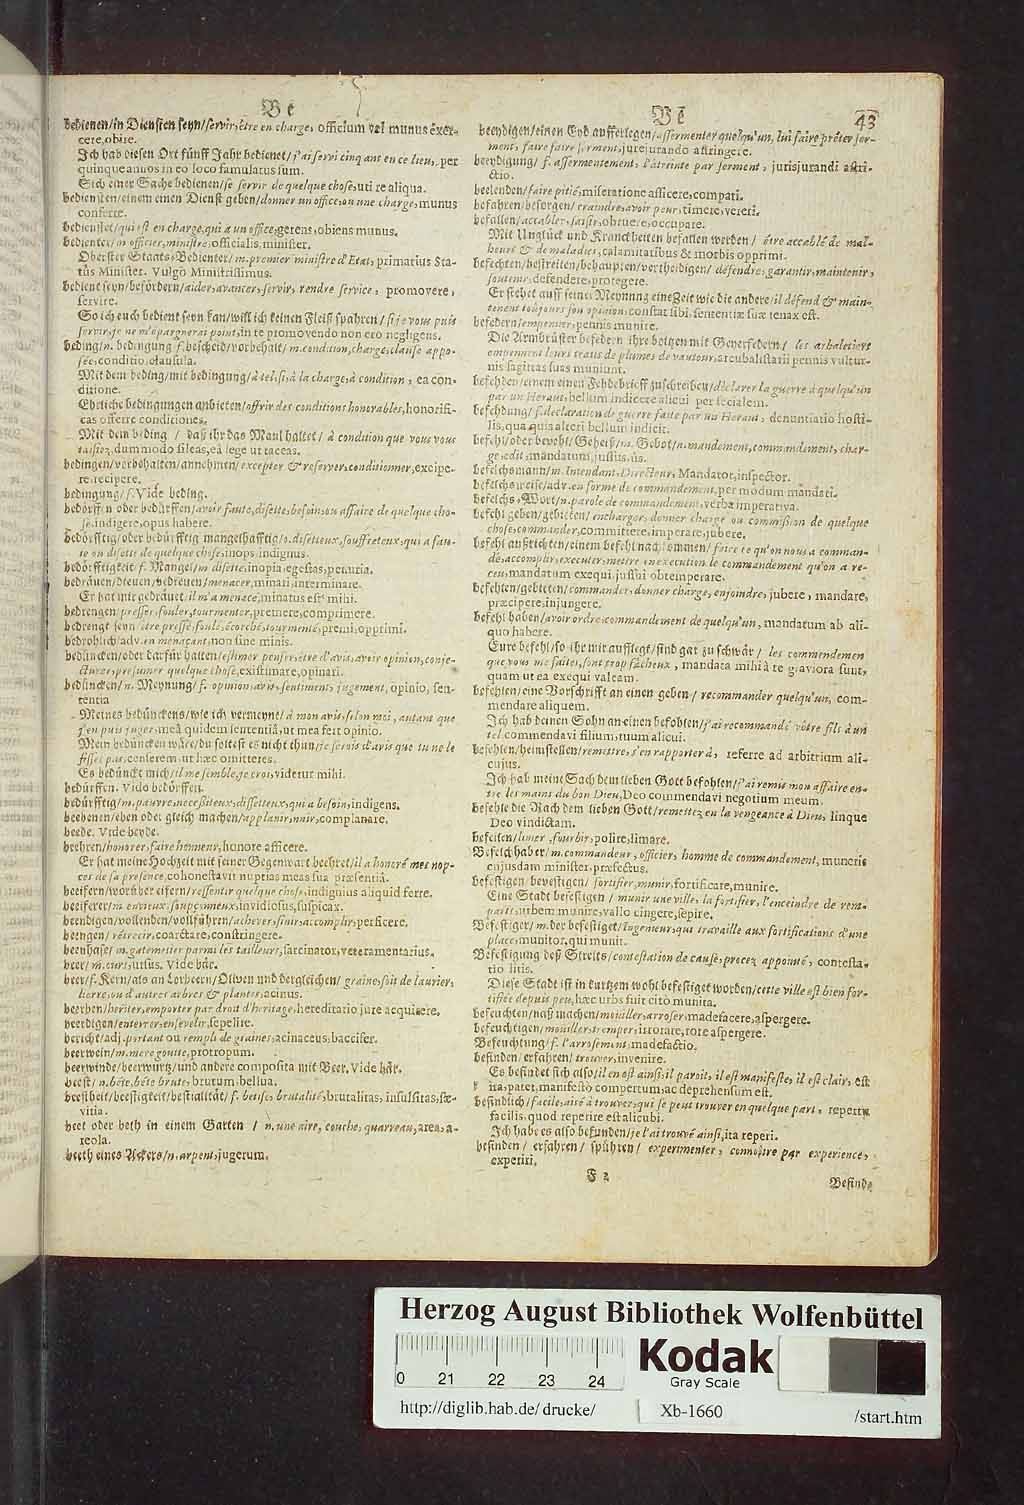 Be
bedienen/in Diensten seyn/servir, être en charge, officium vel munus exer-
cere, obire.
Ich hab diesen Ort fünff Jahr bedienet/j'ai servi cinq ant en ce lieu, per
quinque annos in eo loco famulatus sum.
Sich einer Sache bedienen/se servir de quelque chose, uti re aliqua.
bediensten/einem einen Dienst geben/donner un office, ou une charge, munus
conferre.
bedienstet/qui est en charge, qui a un office, gerens, obiens munus.
bedienter/m officier, ministre, officialis, minister.
Oberster Staats-Bedienter/m. premier ministre d'Etat, primarius Sta-
tûs Minister. Vulgò Ministrissimus.
bedient seyn/befördern/aider, avancer, servir, rendre service, promovere,
servire.
So ich euch bedient seyn kan/will ich keinen Fleiß spahren/si je vous puis
servir, je ne m'épargnerai point, in te promovendo non ero negligens.
beding/n. bedingung f. bescheid/vorbehalt/m. condition, charge, clause appo-
sée, conditio, clausula.
Mit dem beding/mit bedingung/à tel, si, à la charge, à condition, ea con-
ditione.
Ehrliche bedingungen anbieten/offrir des conditions honorables, honorifi-
cas offerre conditiones.
Mit dem beding / daß ihr das Maul haltet / à condition que vous vous
taisiez, dummodo sileas, eâ lege ut taceas.
bedingen/vorbehalten/annehmen/excepter & reserver, conditionner, excipe-
re, recipere.
bedingung/f. Vide beding.
bedörffen oder bedürffen/avoir faute, disette, besoin, ou affaire de quelque cho-
se, indigere, opus habere.
bedörfftig/oder bedürfftig mangelhafftig/o. disetteux, souffreteux, qui a fau-
te ou disette de quelque chose, inops, indignus.
bedörfftigkeit f. Mangel/m disette, inopia, egestas, penuria.
bedräuen/dreuen/bedreuen/menacer, minari, interminare.
Er hat mir gedräuet, il m'a menacé, minatus est mihi.
bedrengen presser, fouler, tourmenter, premere, comprimere.
bedrengt seyn être pressé, foulé, écorché, tourmenté, premi, opprimi.
bedrohlich/adv. en menaçant, non sine minis.
bedüncken/oder darfür halten/estimer penser, être d'avis, avoir opinion, conje-
cturer, presumer quelque chose, existimare, opinari.
bedüncken/n. Meynung/f. opinion, avis, sentiment, jugement, opinio, sen-
tentia
Meines bedünckens/wie ich vermeyne/à mon avis, selon moi, autant que
j'en puis juger, meâ quidem sententiâ, ut mea fert opinio.
Mein bedüncken wäre/du soltest es nicht thun/je serois d'avis que tu ne le
fisses pas, censerem ut hæc omitteres.
Es bedünckt mich/il me semble, je crois, videtur mihi.
bedürffen. Vide bedörffen.
bedürfftig/m. pauvre, necessiteux, disetteux, qui a besoin, indigens.
beebenen/eben oder gleich machen/applanir, unir, complanare.
beede. Vide beyde.
beehren/honorer, faire honneur, honore afficere.
Er hat meine Hochzeit mit seiner Gegenwart beehret/il a honoré mes nop-
ces de sa presence, cohonestavit nuptias meas sua præsentiâ.
beeifern/worüber eifern/ressentir quelque chose, indignius aliquid ferre.
beeiferer/m envieux, soupçonneux, invidiosus, suspicax.
beendigen/vollenden/vollführen/achever, finir, accomplir, perficere.
beengen/ rétrecir, coarctare, constringere.
beenhase/m. gatemetier parmi les tailleurs, sarcinator, veteramentarius.
beer/m. ours, ursus. Vide bär.
beer/f. Kern/als an Lorbeern/Oliven und dergleichen/graine, soit de laurier,
lierre, ou d'autres arbres & plantes, acinus.
beerben/heriter, emporter par droit d'heritage, hereditario jure acquirere.
beerdigen/enterrer, ensevelir, sepelire.
bericht/adj. portant ou rempli de graines, acinaceus, baccifer.
beerwein/m. mere goutte, protropum.
beerwinde/beerwurtz/und andere composita mit Beer, Vide bär.
beest/ n. bête, bête brute, brutum, bellua.
beestheit/beestigkeit/bestialität/ f. bêtise, brutalité, brutalitas, insulsitas, sæ-
vitia.
beet oder beth in einem Garten / n. une aire, couche, quarreau, area, a-
reola.
beeth eines Ackers/n. arpent, jugerum.
Be
43
beeydigen/einen Eyd aufferlegen/assermenter quelqu'un, lui faire prêter ser-
ment, faire faire serment, jurejurando astringere.
beeydigung/ f. assermentement, l'àtreinte par serment, jurisjurandi astri-
ctio.
beelenden/faire pitié, miseratione afficere, compati.
befahren/besorgen/ craindre, avoir peur, timere, vereri.
befallen/accabler, saisir, obruere, occupare.
Mit Unglück und Kranckheiten befallen werden / être accablé de mal-
heurs & de maladies, calamitatibus & morbis opprimi.
befechten/bestreiten/behaupten/vertheidigen/ défendre, garantir, maintenir,
soutenir, defendere, protegere.
Er stehet auff seiner Meynung eine Zeit wie die andere/il défend & main-
tenent toujours son opinion, constat sibi, sententiæ suæ tenax est.
befedern/empenner, pennis munire.
Die Armbrüster befedern ihre boltzen mit Geyerfedern/ les arbaletiers
empennent leurs traits de plumes de vautour, arcubalistarii pennis vultur-
nis sagittas suas muniunt.
befehden/einem einen Fehdebrieff zuschreiben/déclarer la guerre à quelqu'un
par un Heraut, bellum indicere alicui per fecialem.
befehdung/ f. declaration de guerre faite par un Heraut, denuntiatio hosti-
lis, qua quis alteri bellum indicit.
befehl/oder bevehl/Geheiß/m. Gebot/n. mandement, commandement, char-
ge, edit, mandatum, jussus, ûs.
befelchsmann/m. Intendant, Directeur, Mandator, inspector.
befelchsweise/adv. en forme de commandement, per modum mandati.
befelchs-Wort/n. parole de commandement, verba imperativa.
befehl geben/gebieten/ encharger, donner charge ou commission de quelque
chose, commander, committere, imperare, jubere.
befehl außrichten/einem befehl nachkommen/ faire ce qu'on nous a comman-
dé, accomplir, executer, mettre in execution le commandement qu'on a re-
ceu, mandatum exequi jussui obtemperare.
befehlen/gebieten/commander, donner charge, enjoindre, jubere, mandare,
præcipere, injungere.
befehl haben/avoir ordre, commandement de quelqu'un, mandatum ab ali-
quo habere.
Eure befehl/so ihr mir aufflegt/sind gar zu schwär/ les commandemen
que vous me faites, sont trop fâcheux, mandata mihi à te graviora sunt,
quam ut ea exequi valeam.
befehlen/eine Vorschrifft an einen geben/ recommander quelqu'un, com-
mendare aliquem.
Ich hab deinen Sohn an einen befohlen/j'ai recommandé vôtre fils à un
tel commendavi filium tuum alicui.
befehlen/heimstellen/remettre, s'en rapporter à, referre ad arbitrium ali-
cujus.
Ich hab meine Sach dem lieben Gott befohlen/j'ai remis mon affaire en-
tre les mains du bon Dieu, Deo commendavi negotium meum.
befehle die Rach dem lieben Gott/remettez en la vengeance à Dieu, linque
Deo vindictam.
befeilen/limer, fourbir, polire, limare.
Befelchhaber/ m. commandeur, officier, homme de commandement, muneris
cujusdam minister, præfectus.
befestigen bevestigen/ fortifier, munir, fortificare, munire.
Eine Stadt befestigen / munir une ville, la fortifier, l'enceindre de rem-
parts, urbem munire, vallo cingere, sepire.
Befestiger/ m. der befestiget/Ingenieur, qui travaille aux fortifications d'une
place, munitor, qui munit.
Befestigung deß Streits/contestation de cause, procez appointé, contesta-
tio litis.
Diese Stadt ist in kurtzem wohl befestiget worden/cette ville est bien for-
tifiée depuis peu, hæc urbs fuit citò munita.
befeuchten/naß machen/mouiller, arroser, madefacere, aspergere.
befeuchtigen/mouiller, tremper, irrorare, rore aspergere.
Befeuchtung/ f. l'arrosement, madefactio.
befinden/erfahren/ trouver, invenire.
Es befindet sich also/il en est ainsi, il paroit, il est manifeste, il est clair, est
ita, patet, manifesto compertum, ac deprehensum est.
befindlich/facile, aisé à trouver, qui se peut trouver en quelque part, repertu
facilis, quod reperire est alicubi.
Ich habe es also befunden/je l'ai trouvé ainsi, ita reperi.
befinden/ erfahren/ spühren/ experimenter, connoître par experience,
experiri.
F 2
Befinde
Herzog August Bibliothek Wolfenbüttel
0 21 22 23 24
Kodak
Gray Scale
http://diglib.hab.de/drucke/
Xb-1660
/start.htm